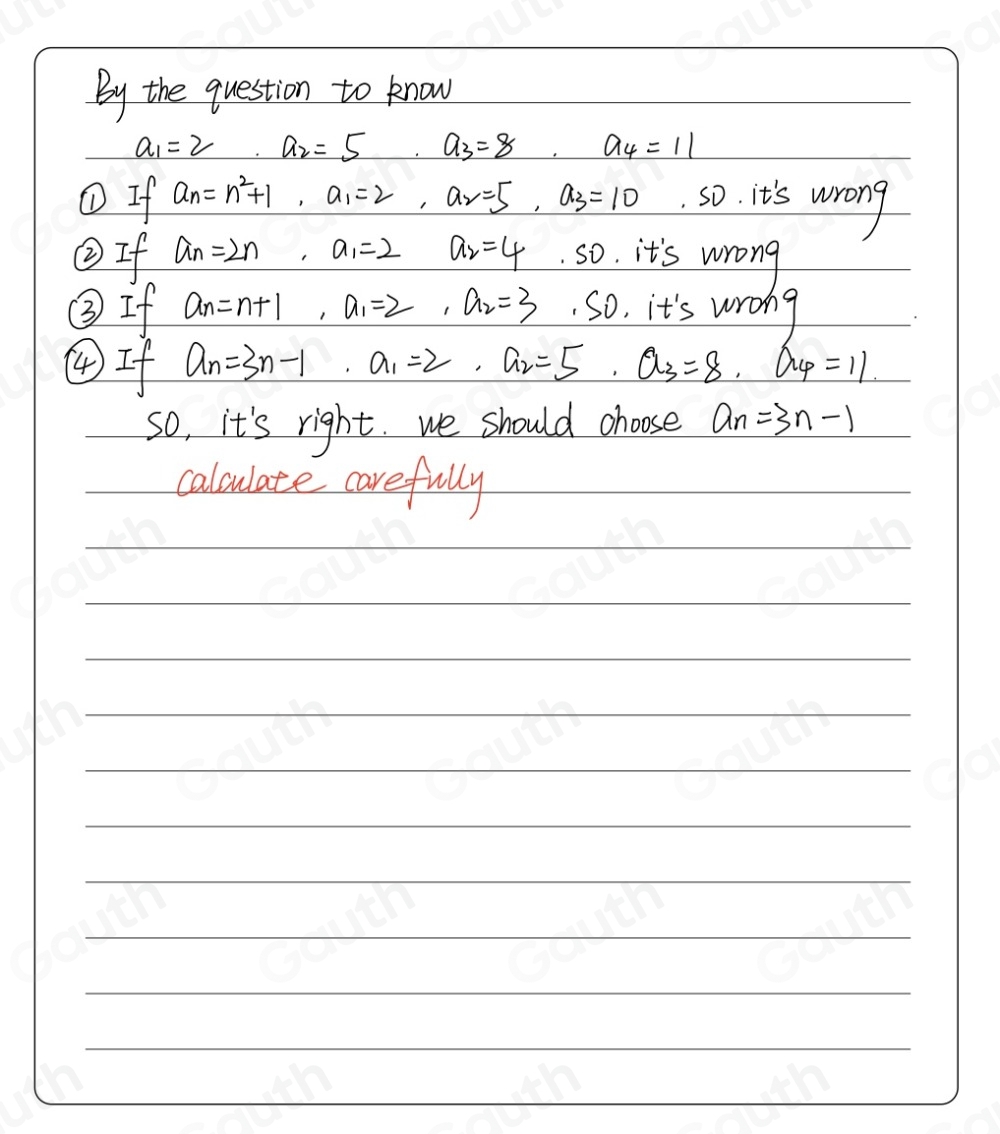 By the question to know
a₁=2 . a₂=5 . a₃=8 . a₄=11
① If aₙ=n²+1 , a₁=2 , a₂=5 , a₃=10 . so . it's wrong
② If aₙ=2n , a₁=2 a₂=4 . so . it's wrong
③ If aₙ=n+1 , a₁=2 , a₂=3 . so . it's wrong
④ If aₙ=3n-1 . a₁=2 . a₂=5 . a₃=8 . a₄=11.
so, it's right. we should choose aₙ=3n-1
calculate carefully